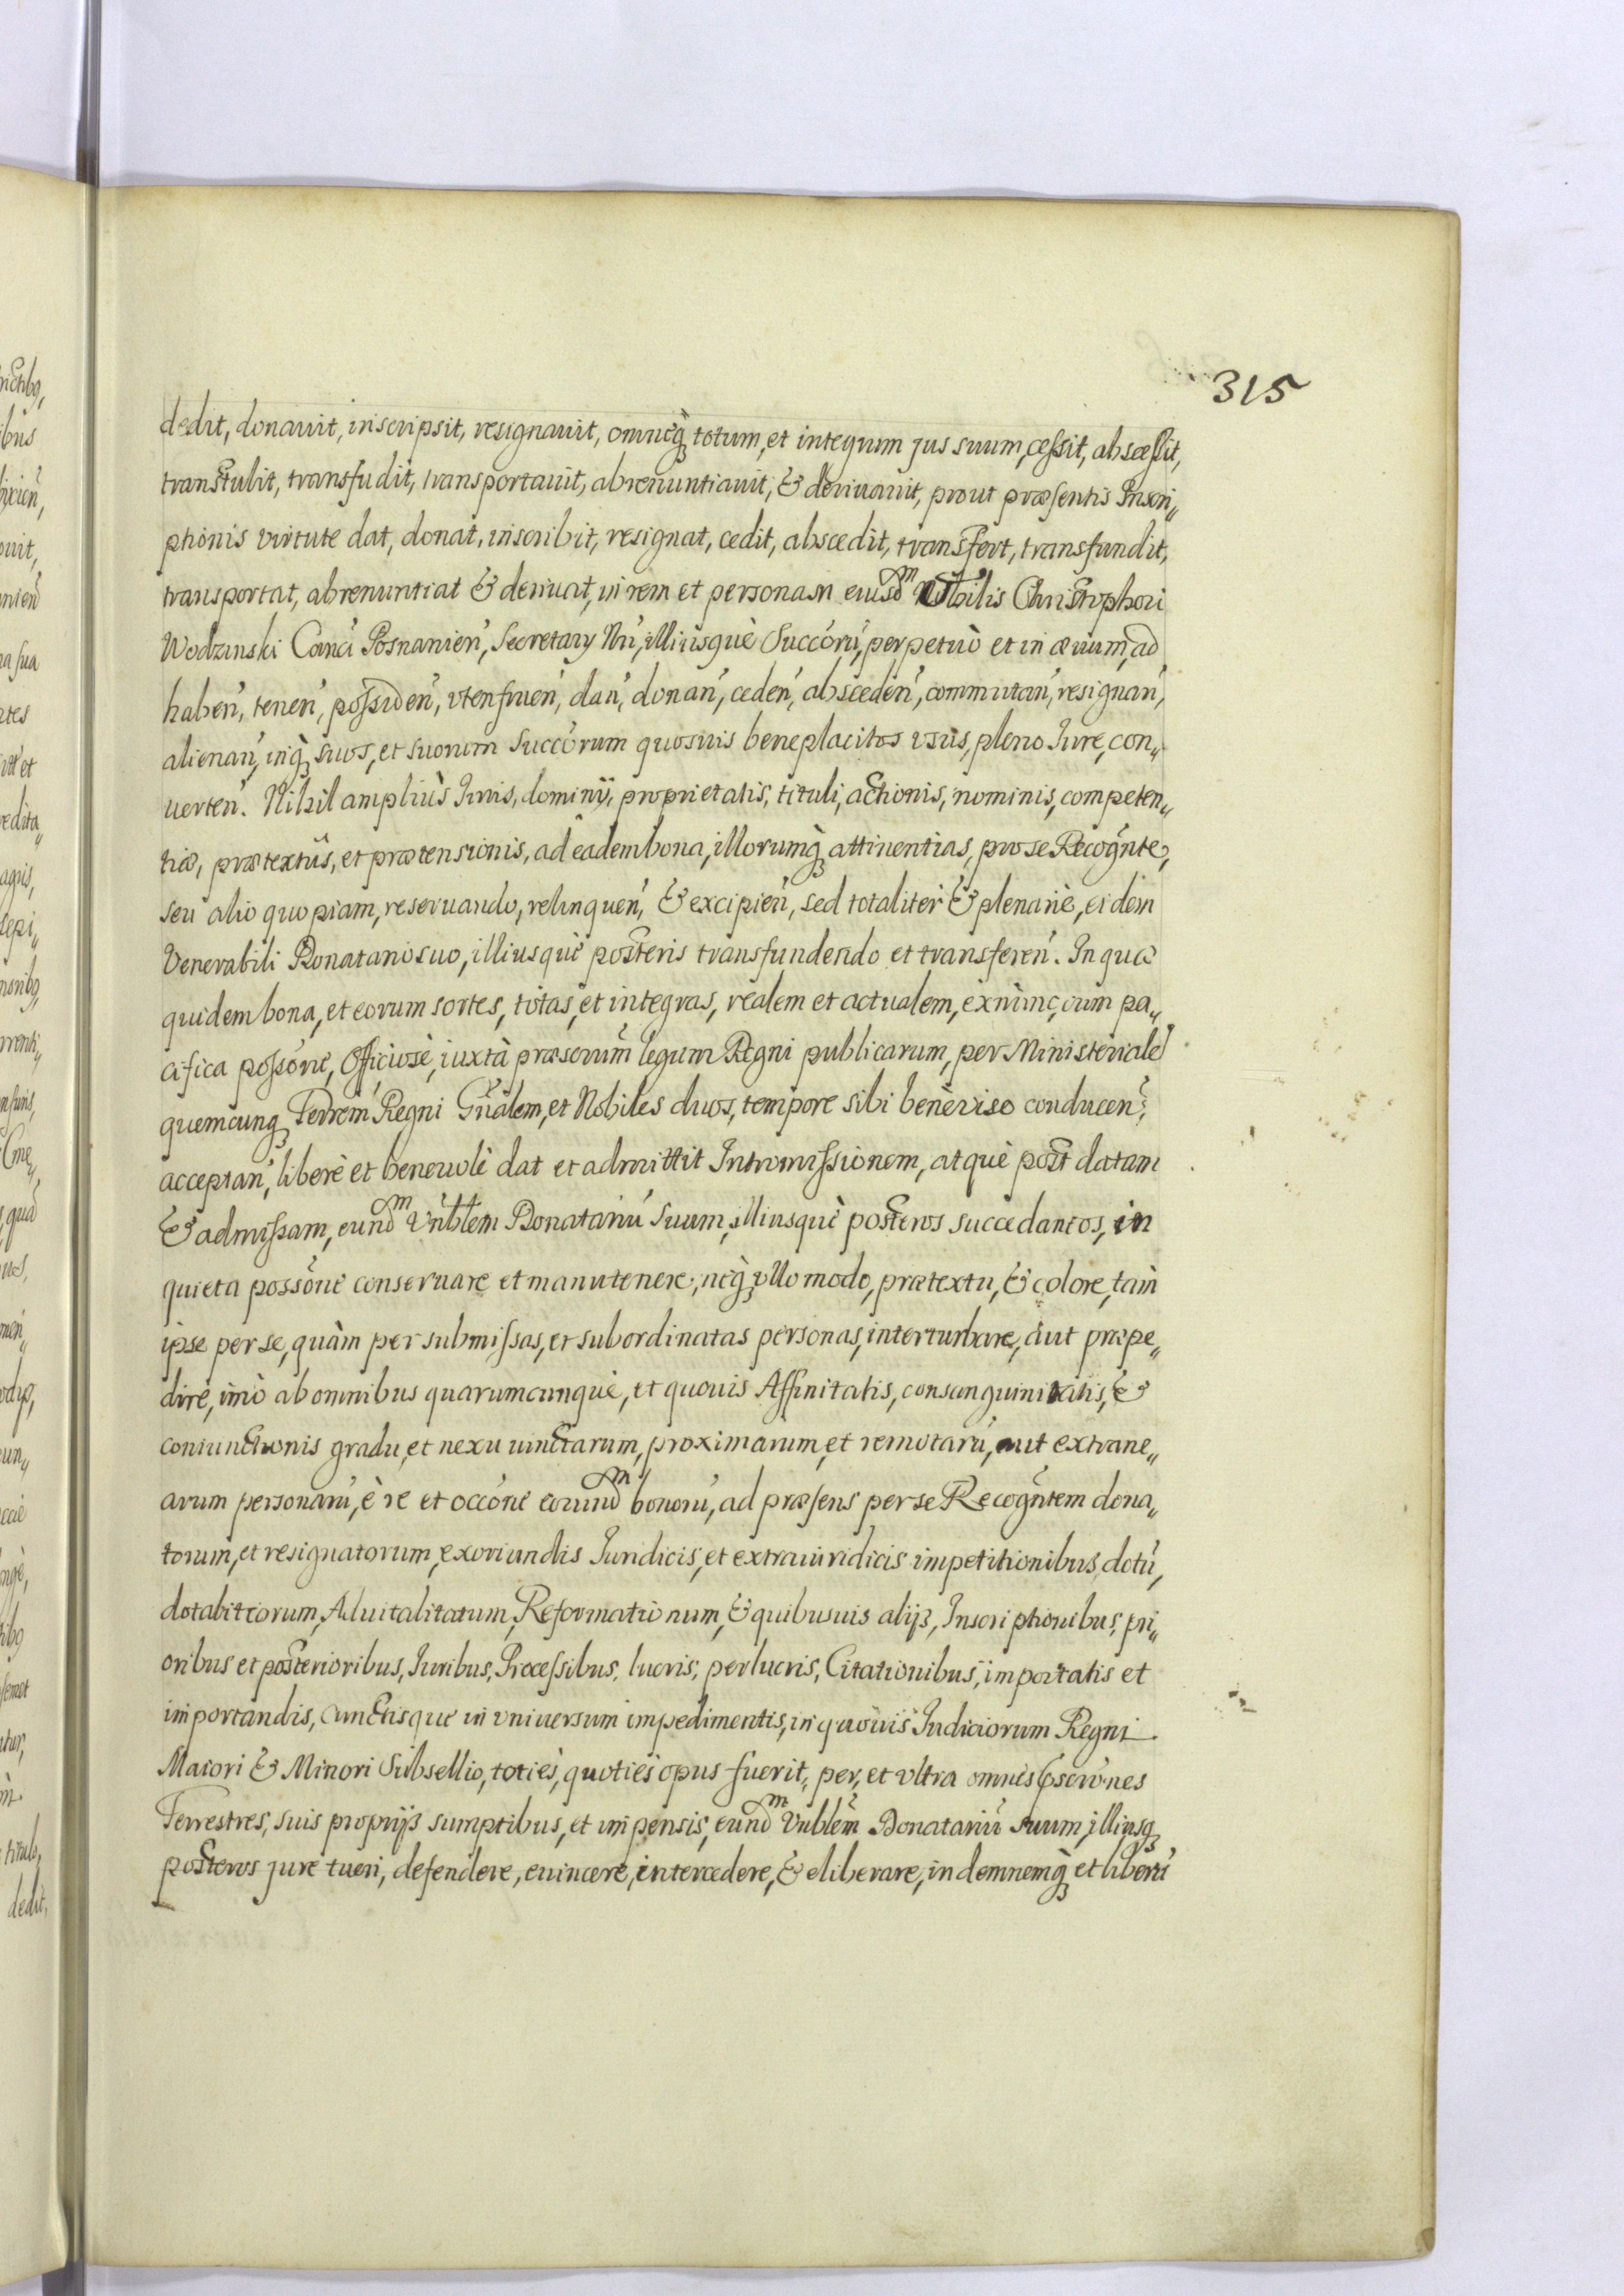 315
dedit, donauit, inscripsit, resignauit, omneq́ totum, et integrum jus suum, cessit, abscessit,
transtulit, transfudit, transportauit, abrenuntiauit, & deriuauit, prout præsentis Inscri„
ptionis virtute dat, donat, inscribit, resignat, cedit, abscedit, transfert, transfundit,
transportat, abrenuntiat & deriuat, in rem et personam eiusdm Nobilis Christophori
Wodzinski Canci Posnanien, Secretarÿ Nri, illiusquè Succorũ, perpetuò et in æuum, ad
haben, tenen, possiden, vtenfruen, dan, donan, ceden, absceden, commutan, resignan,
alienan, inq́ suos, et suorum Succorum quosuis beneplacitos vsus, pleno Iure, con„
uerten. Nihil ampliùs Iuris, dominÿ, proprietatis, tituli, actionis, nominis, competen„
tiæ, prætextus, et prætensionis, ad eadem bona, illorumq́ attinentias, pro se Recognte,
seu alio quopiam, reseruando, relinquen, & excipien, sed totaliter & plenariè, eidem
Venerabili Donatario suo, illiusquè posteris transfundendo et transferen. In quæ
quidem bona, et eorum sortes, totas, et integras, realem et actualem, exnunc, cum pa„
cifica possone, Officiosè, iuxtà præscrum legum Regni publicarum, per Ministeriale
quemcunq Terrem Regni Gnalem, et Nobiles duos, tempore sibi benèviso conducen,
acceptan, liberè et beneuolè dat et admittit Intromissionem, atquè post datam
& admissam, eundm Vnblem Donatariũ suum, illiusquè posteros succedaneos, in
quieta possone conseruare et manutenere, neq́ vllo modo, prætextu, & colore, tam
ipse per se, quàm per submissas, et subordinatas personas, interturbare, aut præpe„
dire, imò ab omnibus quarumcunquè, et quouis Affinitatis, consanguinitatis, &
coniunctionis gradu, et nexu uinctarum, proximarum, et remotarũ, aut extrane„
arum personarũ, è re et occone eorundm bonorũ, ad præsens per se Recogntem dona„
torum, et resignatorum, exoriundis Iuridicis, et extraiuridicis impetitionibus, dotũ,
dotalitiorum, Aduitalitatum, Reformationum, & quibusuis alÿs, Inscriptionibus, pri„
oribus et posterioribus, Iuribus, Processibus, lucris, perlucris, Citationibus, importatis et
importandis, cunctisque in vniuersum impedimentis, in quouis Iudiciorum Regni
Maiori & Minori Subsellio, toties, quoties opus fuerit, per, et vltra omnes Pscriones
Terrestres, suis proprÿs sumptibus, et impensis, eundm Vnblem Donatariũ suum, illiusq
posteros jure tueri, defendere, euincere, intercedere, & eliberare, indemnemq́ et liberũ